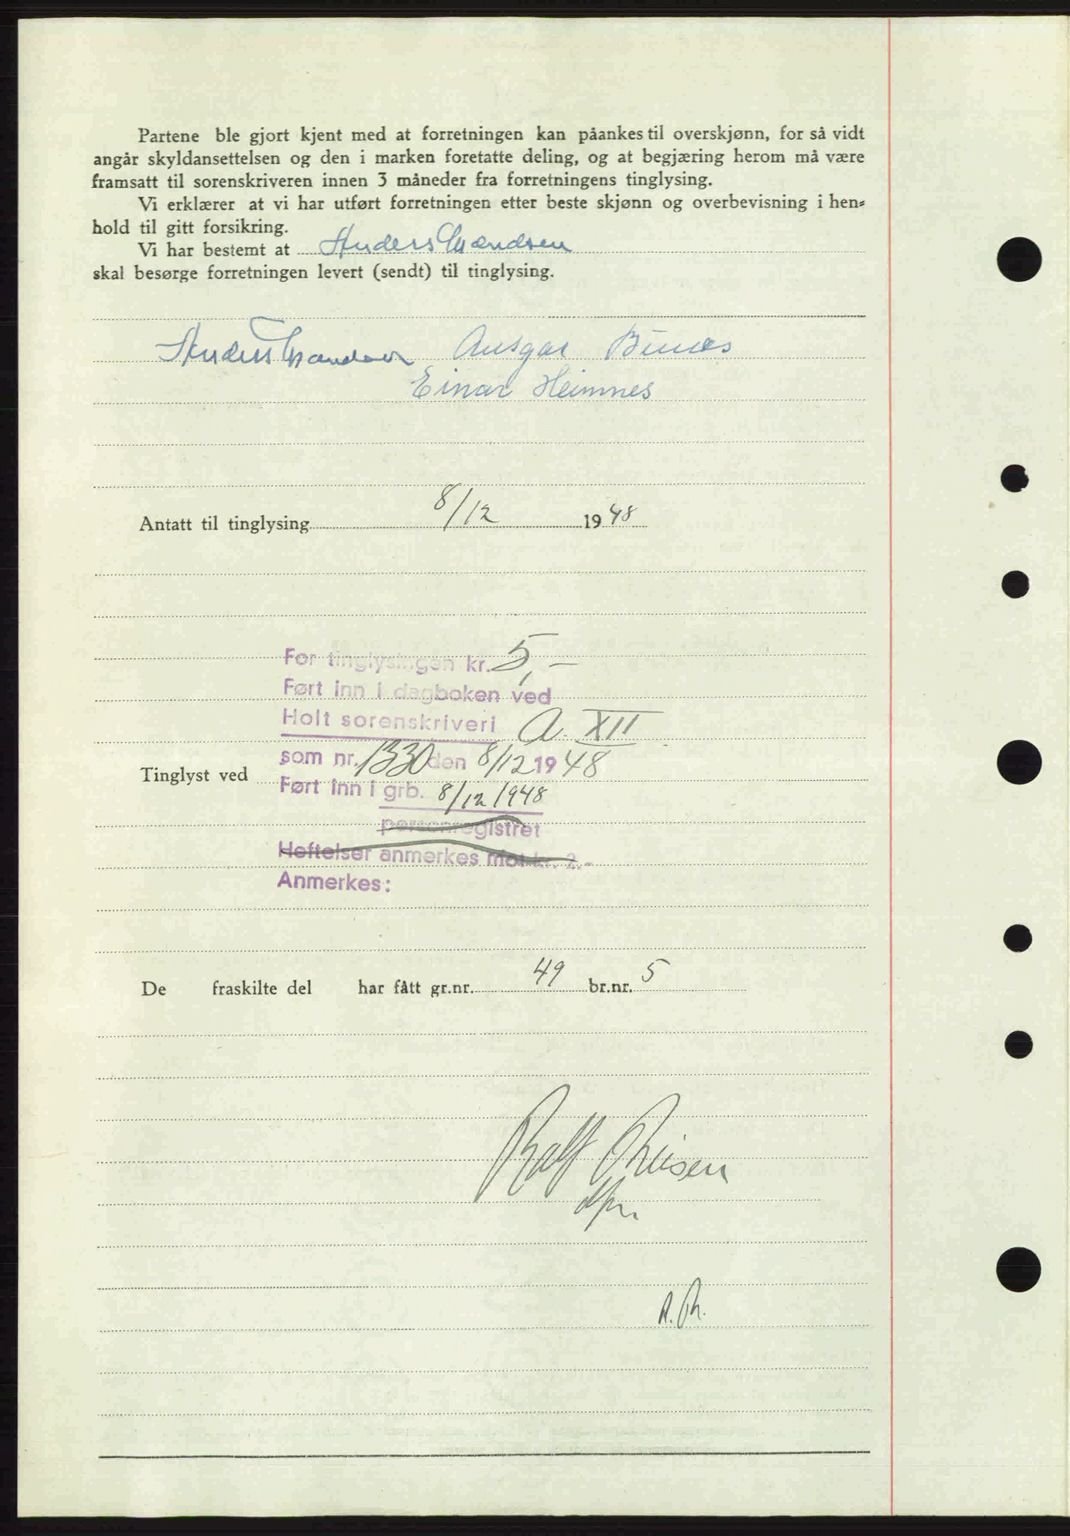 Partene ble gjort kjent med at forretningen kan påankes til overskjønn, for så vidt
angår skyldansettelsen og den i marken foretatte deling, og at begjæring herom må være
framsatt til sorenskriveren innen 3 måneder fra forretningens tinglysing.
Vi erklærer at vi har utført forretningen etter beste skjønn og overbevisning i hen=
hold til gitt forsikring.
Vi har bestemt at Anders
skal besørge forretningen levert (sendt) til tinglysing.
Anders Ansgar
Einar Heimnes
Antatt til tinglysing 8/12 1948
For tinglysingen kr. 5,-
Ført inn i dagboken ved
Holt sorenskriveri A. XII
som nr. 1330 den 8/12 1948
Tinglyst ved
Ført inn i grb. 8/12 1948
personregistret
Heftelser anmerkes mot kr. 2.-
Anmerkes:
De fraskilte del har fått gr.nr. 49 br.nr. 5
Ralf